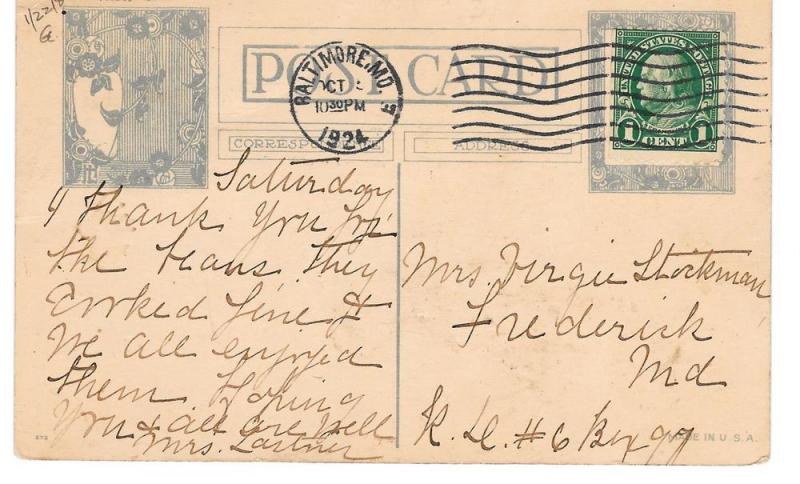 1/22/
POST CARD
BALTIMORE, MD.
OCT
10 30 PM
1924
UNITED STATES POSTAGE
1 CENT 1
CORRESPONDENCE
ADDRESS
Saturday
I thank you for
the beans they
cooked fine &
We all enjoyed
them hoping
You & all are well
Mrs. Lastner
Mrs. Virgie Stockman,
Frederick
Md
R. D. #6 Box 99
MADE IN U.S.A.